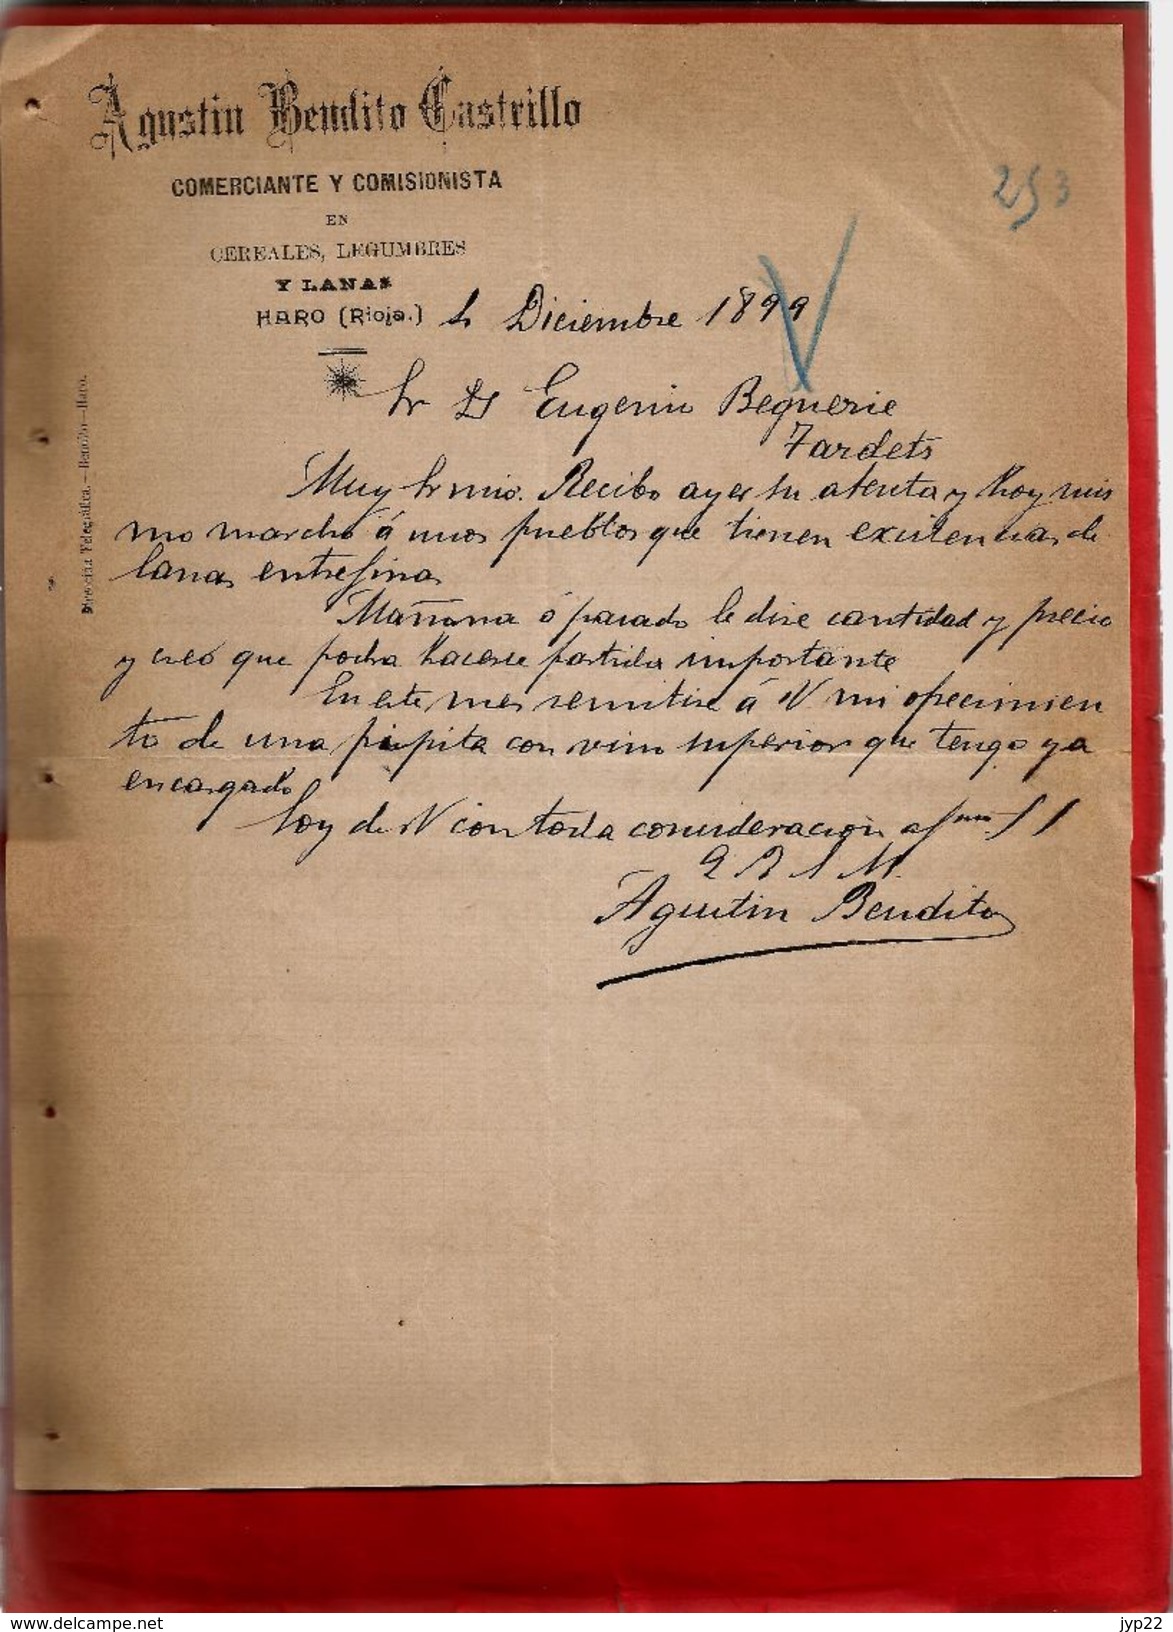 Agustin Bendito Castrillo
COMERCIANTE Y COMISIONISTA
EN
CEREALES, LEGUMBRES
Y LANAS
HARO (Rioja.)
Diciembre 1899
253
Dirección Telegráfica.—Bendito—Haro.
Sr D Eugenio Beguerie
Tardets
Muy Sr mio. Recibo ayer su atenta y hoy mis
mo marcho á unos pueblos que tienen existencias de
lanas entrefinas
Mañana ó pasado le dire cantidad y precio
y creo que podra hacerse partida importante
En este mes remitire á V mi ofrecimien
to de una pipita con vino superior que tengo ya
encargado
Soy de V con toda consideracion afmo S S
Q B S M.
Agustin Bendito
www.delcampe.net
jyp22